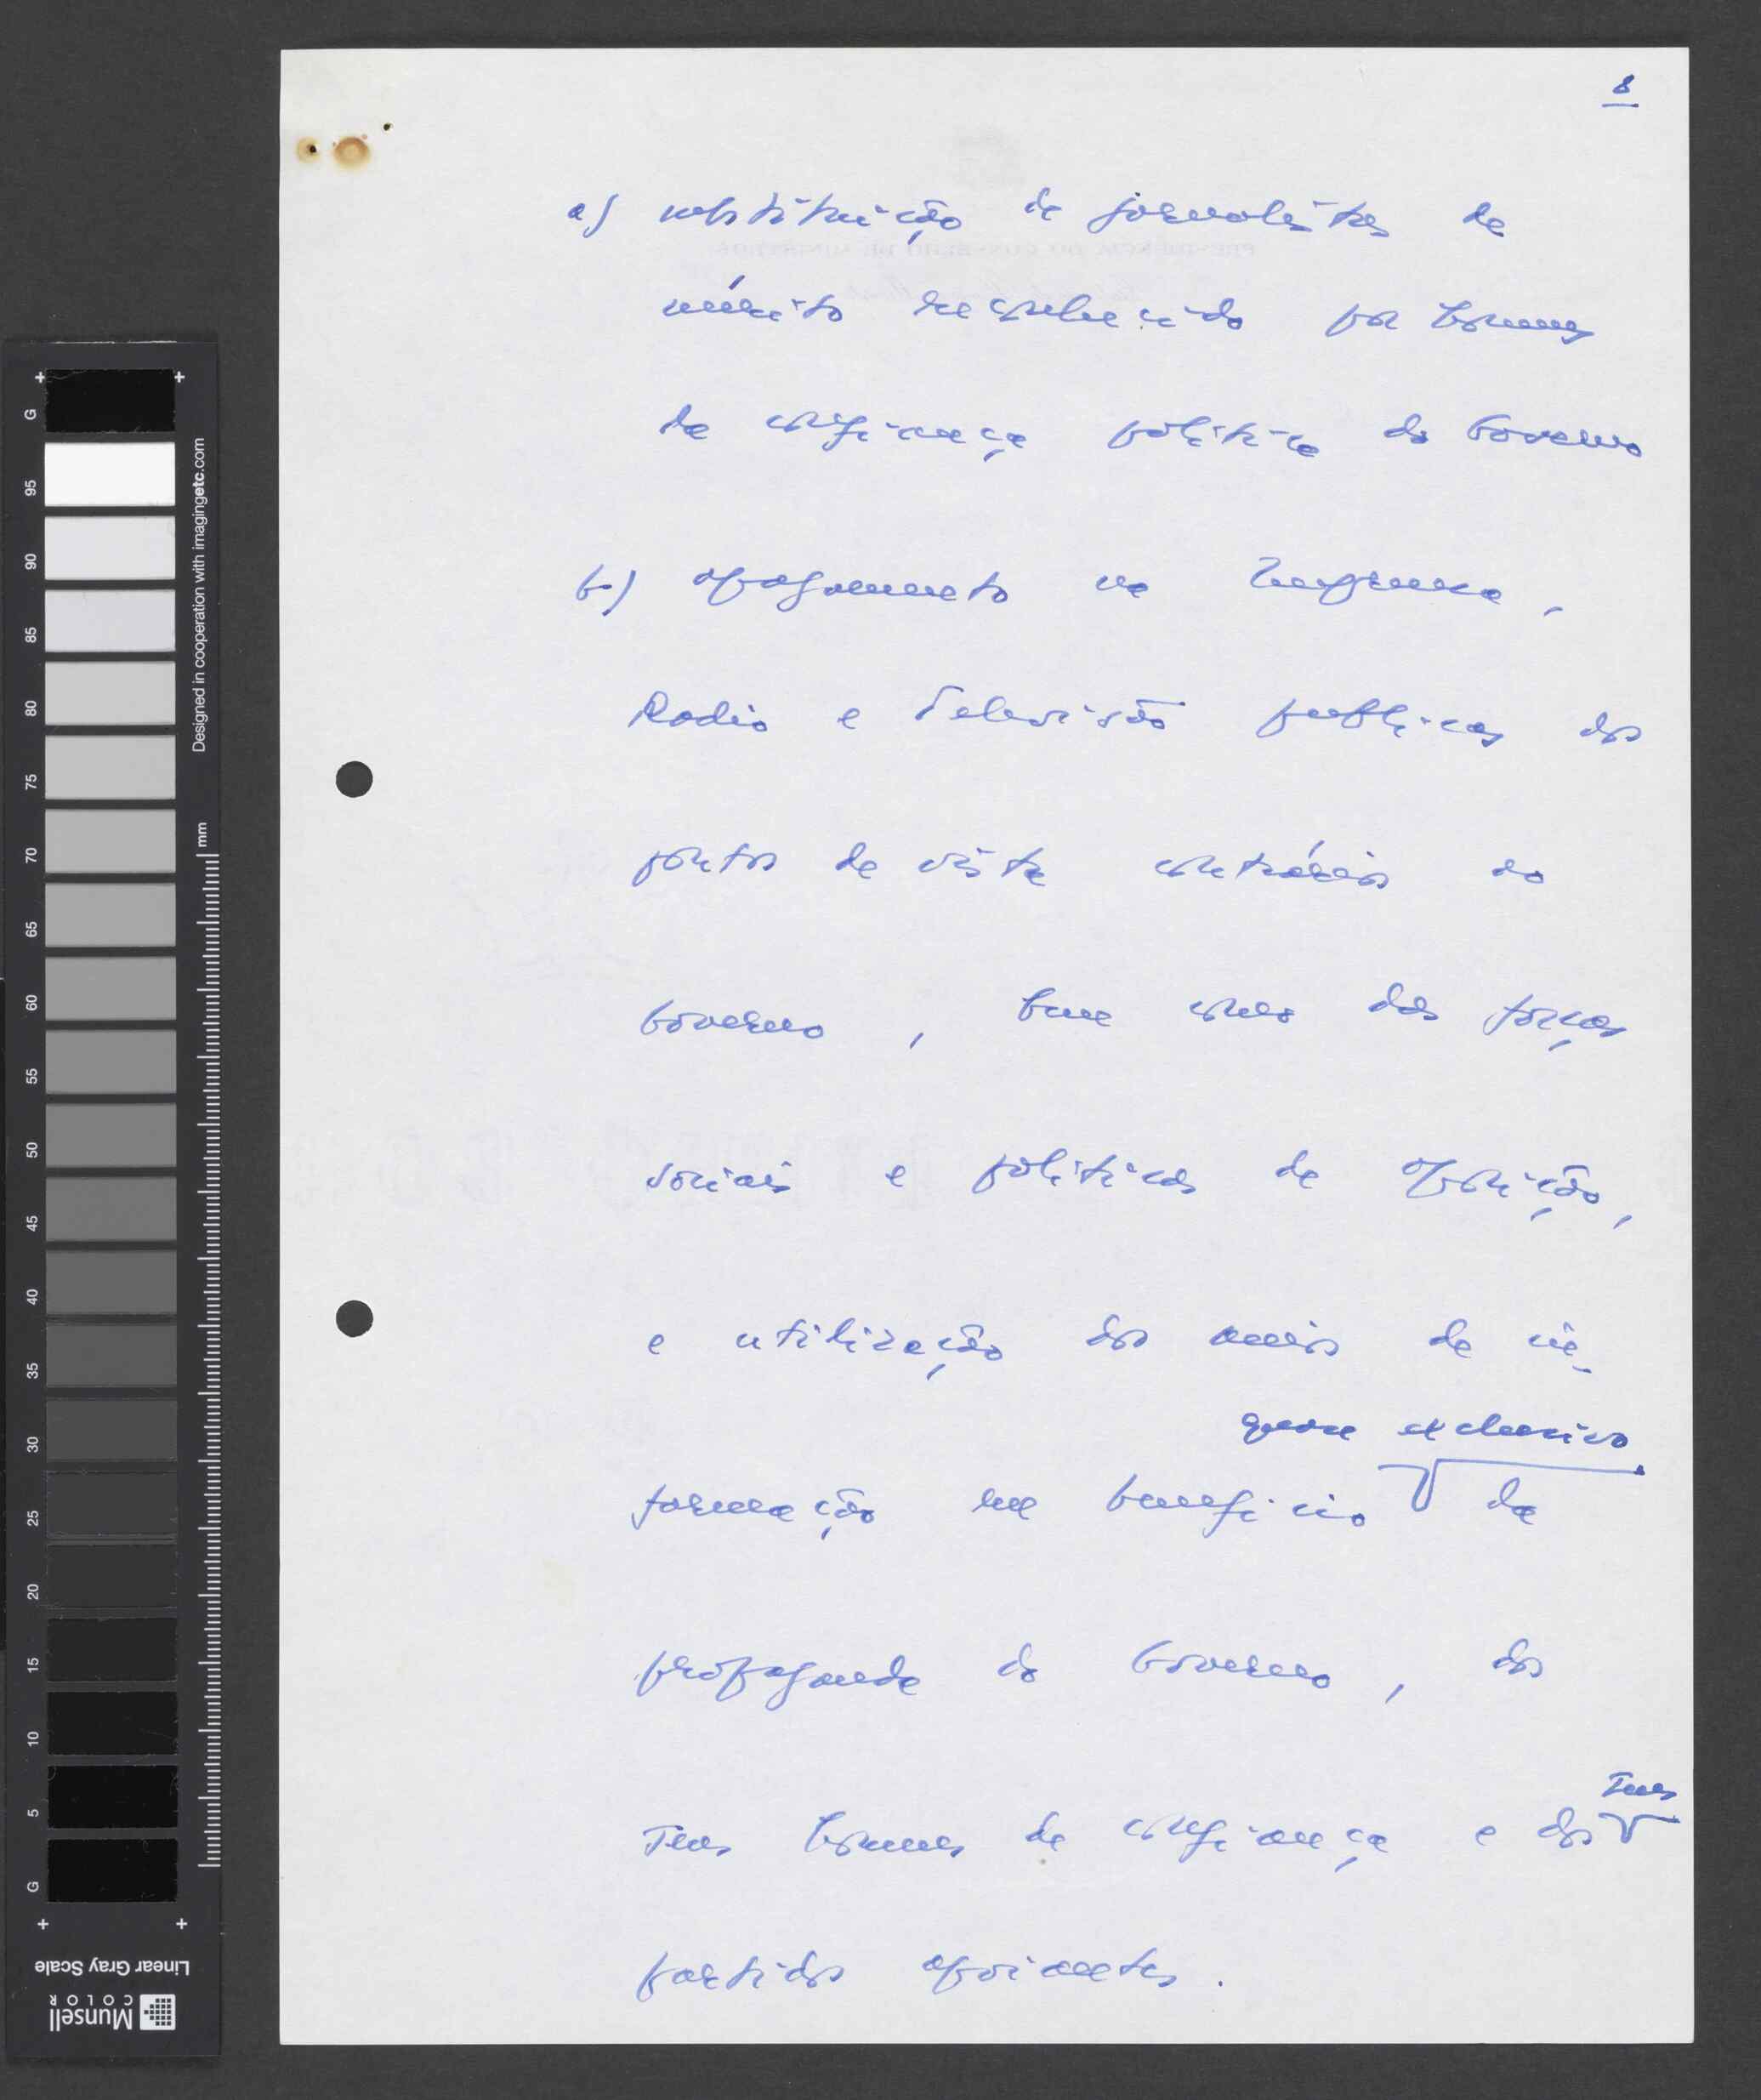 8
a) substituição de jornalistas de
mérito reconhecido por homens
de confiança política do Governo
b) apagamento na Imprensa,
Radio e Televisão publicas dos
pontos de vista contrários ao
Governo, bem como das forças
sociais e politicas de oposição,
e utilização dos meios de in-
quase exclusivo
formação em beneficio da
propaganda do Governo, dos
seus homens de confiança e dos
seus
partidos apoiantes.
G
95
90
85
80
75
70
65
60
55
50
45
40
35
30
25
20
15
10
5
G
Designed in cooperation with imagingetc.com
mm
Linear Gray Scale
Munsell
COLOR